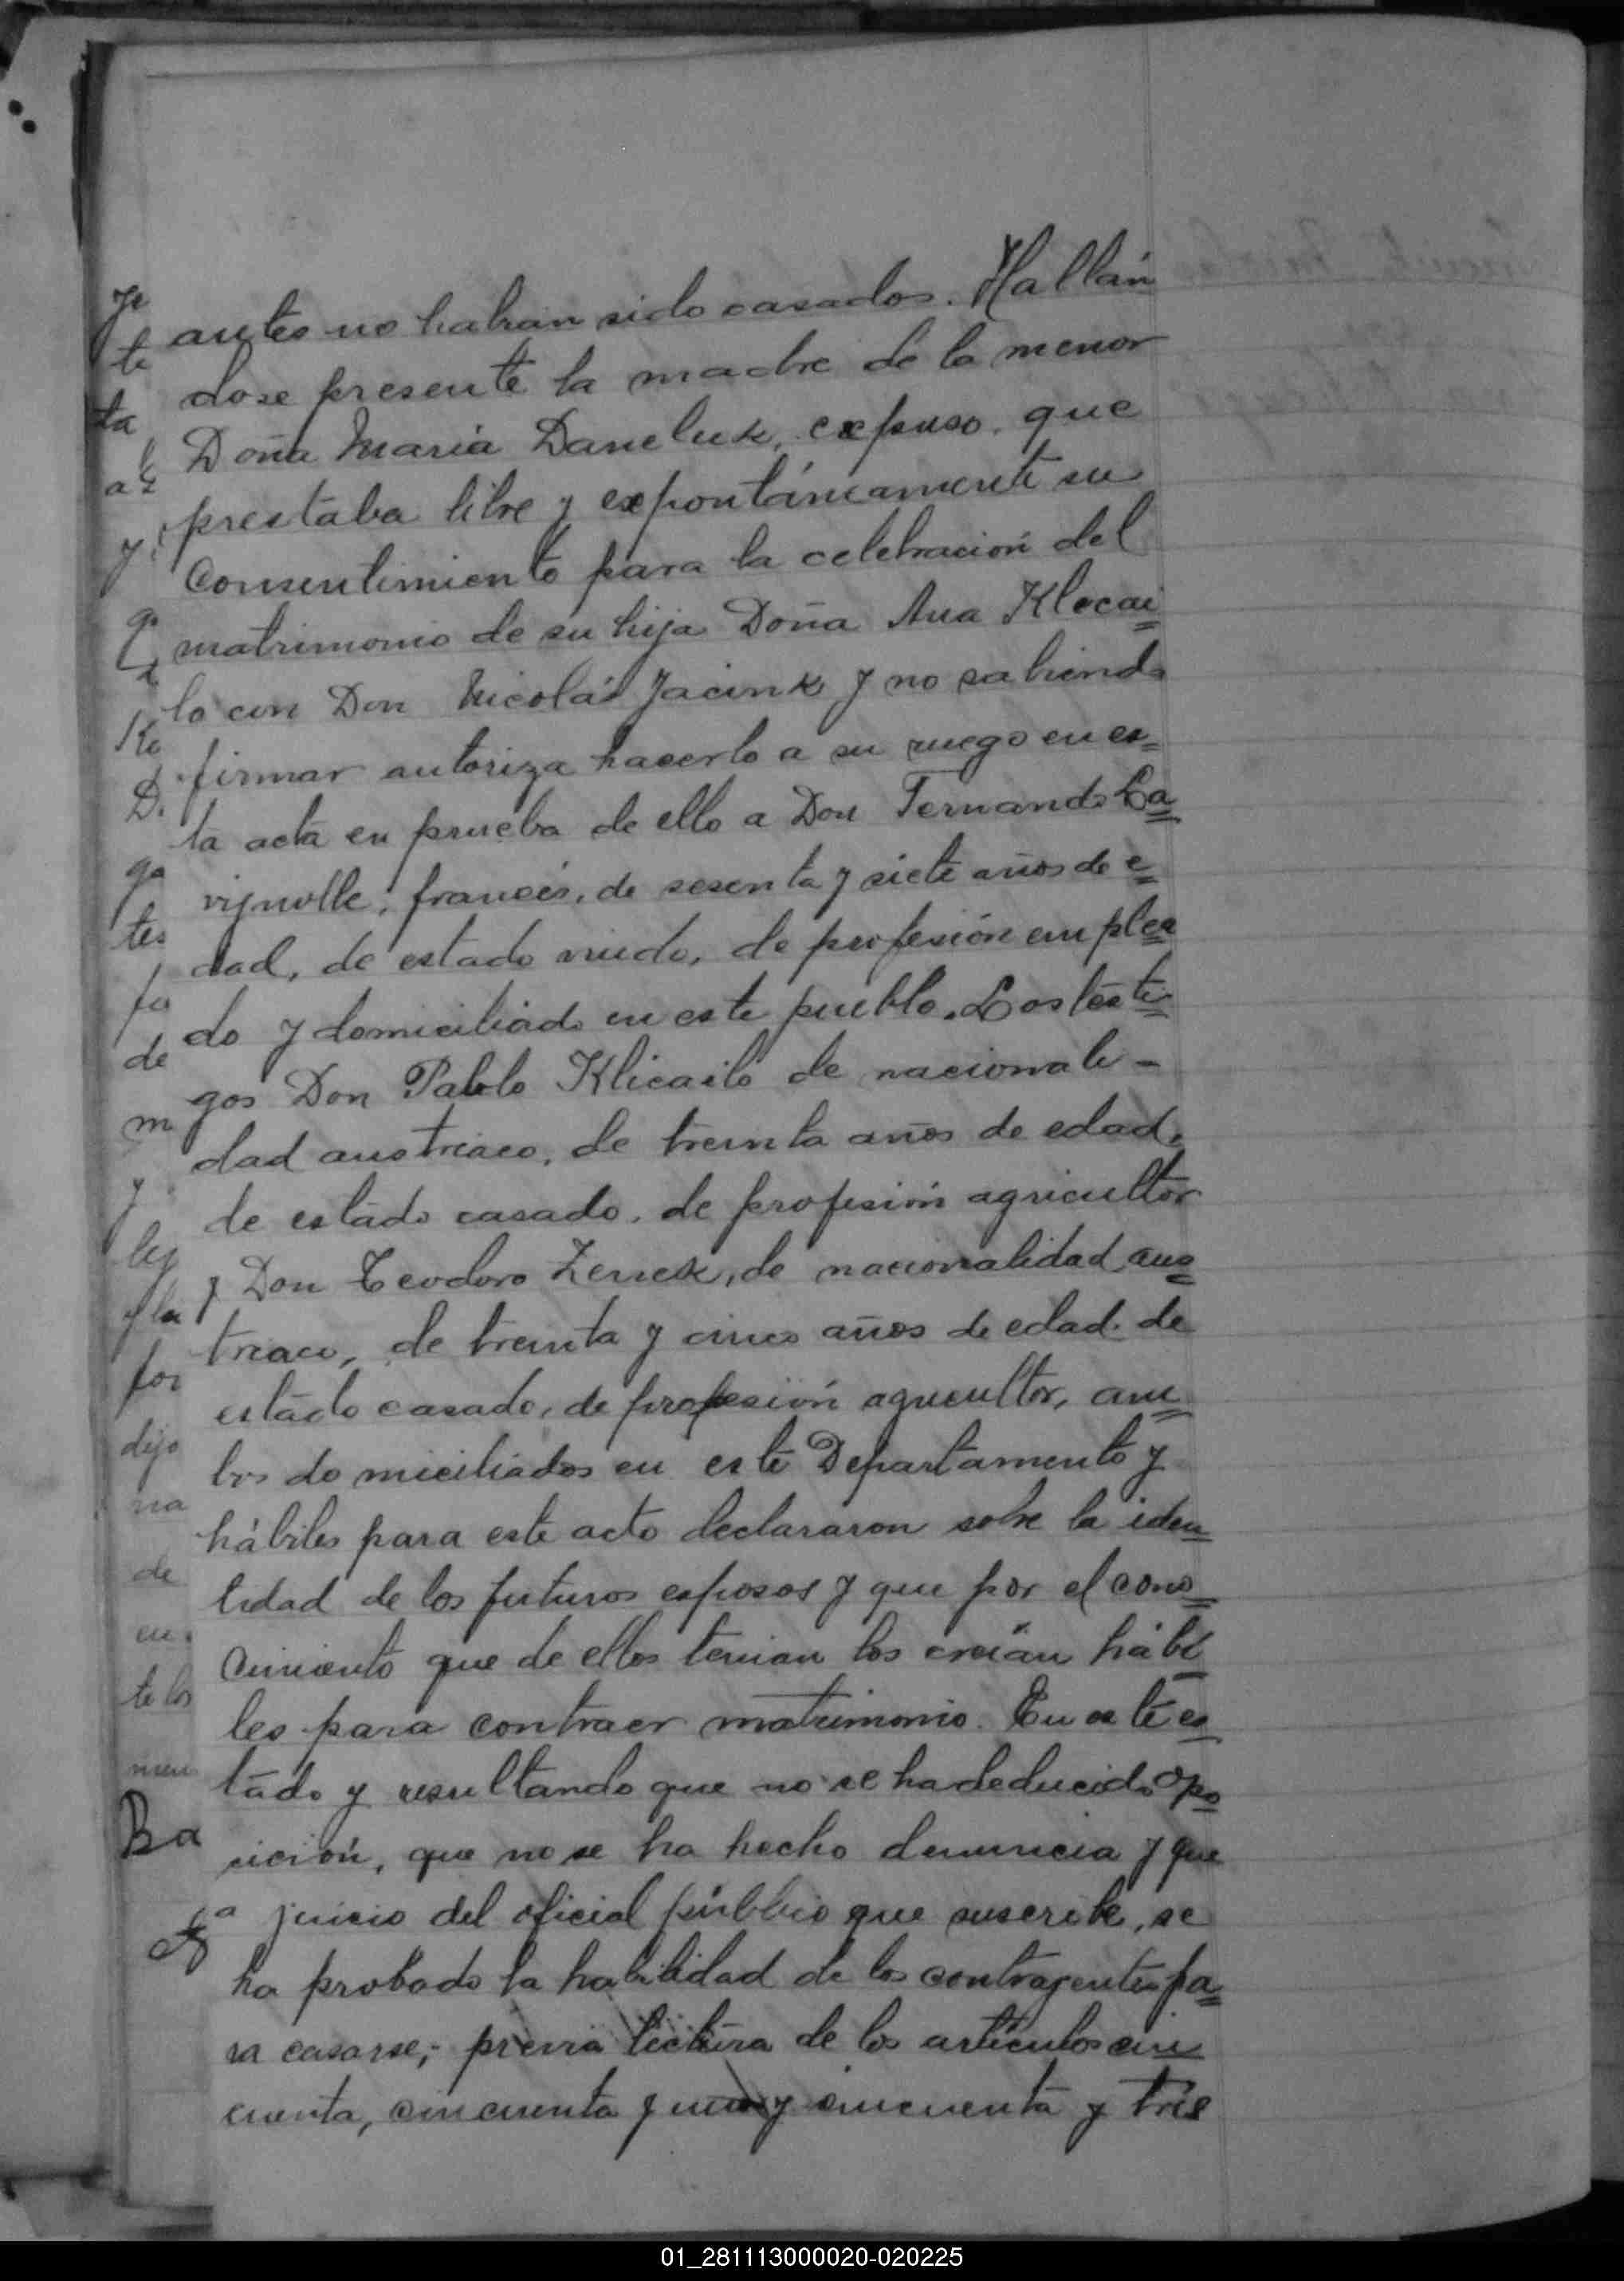 antes no habian sido casados. Hallán
dose presente la madre de la menor
Doña Maria Daneluk, expuso, que
prestaba libre y expontáneamente su
consentimiento para la celebración del
matrimonio de su hija Doña Ana Klocai
lo con Don Nicolás Jacink y no sabiendo
firmar autoriza hacerlo a su ruego en es=
ta acta en prueba de ello a Don Fernando La
vignolle, francés, de sesenta y siete años de e
dad, de estado viudo, de profesión emplea
do y domiciliado en este pueblo. Los testi
gos Don Pablo Klicailo de nacionali-
dad austriaco, de treinta años de edad,
de estado casado, de profesión agricultor
y Don Teodoro Zenek, de nacionalidad aus
triaco, de treinta y cinco años de edad, de
estado casado, de profesión agricultor, am
bos domiciliados en este Departamento y
hábiles para este acto declararon sobre la iden
tidad de los futuros esposos y que por el cono
cimiento que de ellos tenian los creían hábi
les para contraer matrimonio. En este es
tado y resultando que no se ha deducido opo
sición, que no se ha hecho denuncia y que
a juicio del oficial público que suscribe, se
ha probado la habilidad de los contrayentes pa
ra casarse; previa lectura de los artículos cin
cuenta, cincuenta y uno y cincuenta y tres
te
ta
y
Ko
D.
ga
tes
fa
de
m
y
ley
y la
for
dijo
na
de
en
te los
men
Ba
01_281113000020-020225